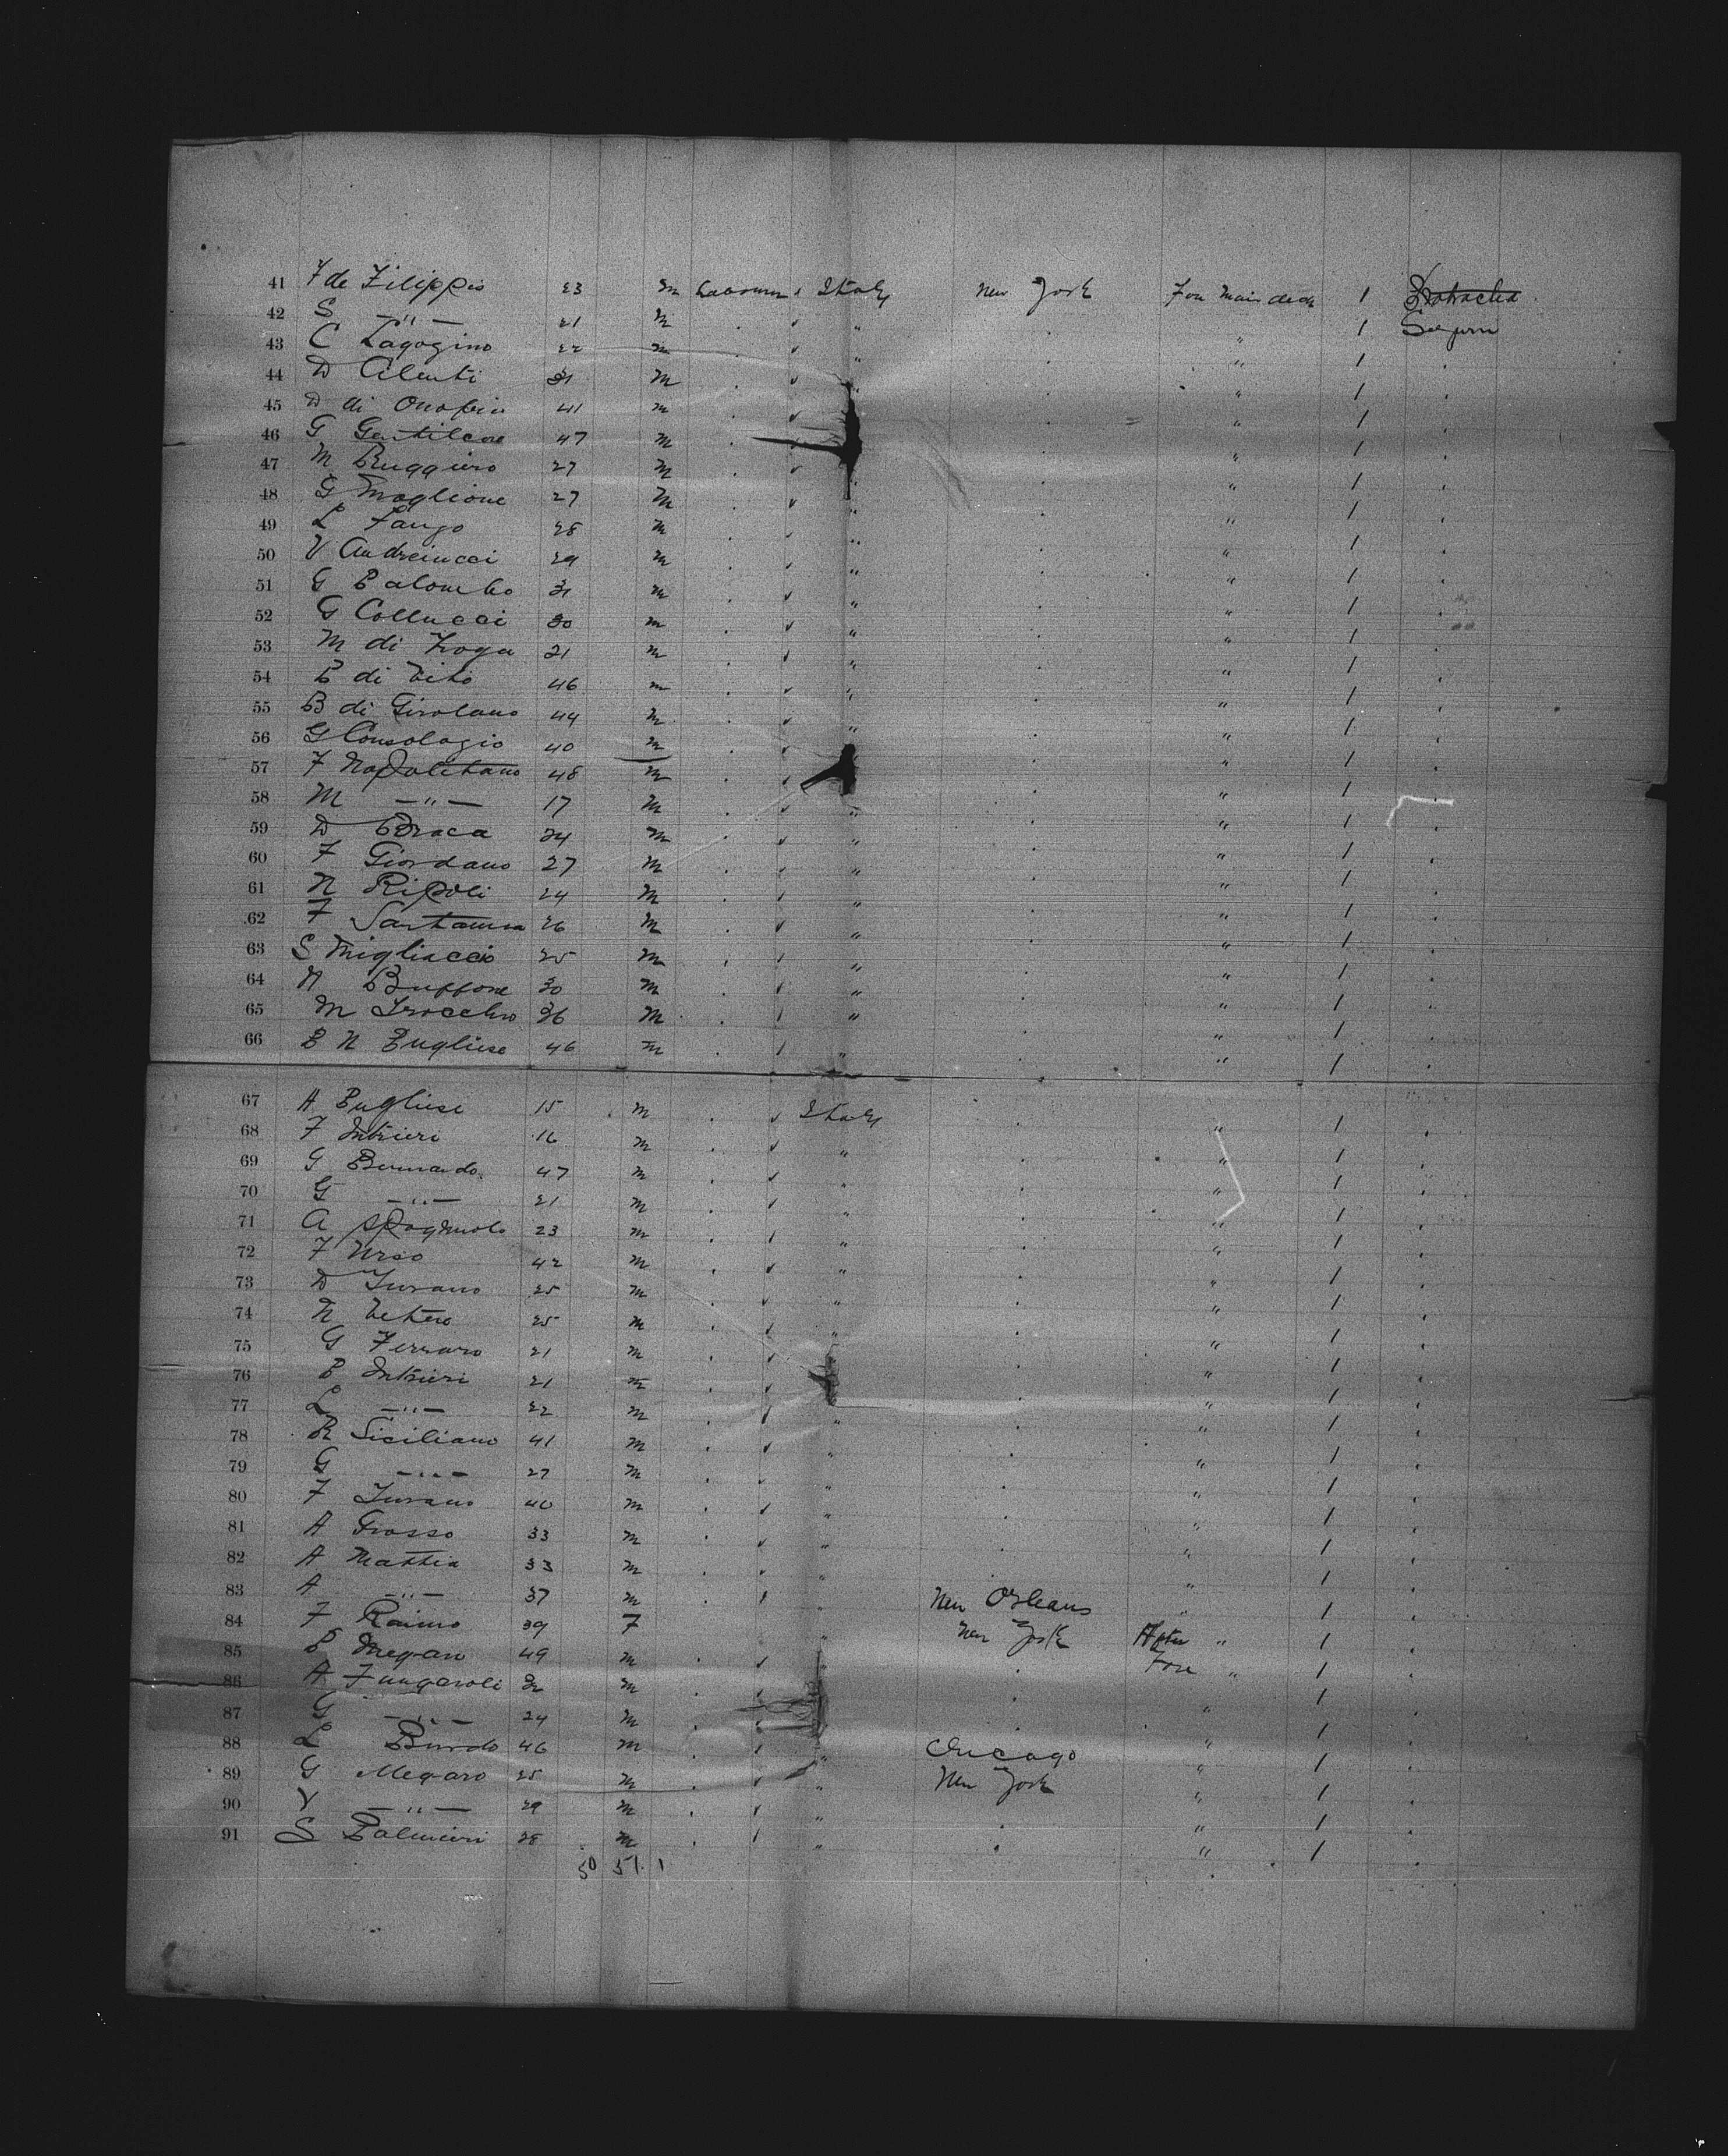 41 F de Filippis 23 m Labourer Italy New York Fore Main deck 1 Protracted
42 S —"— 21 m " " 1 Sojourn
43 C Lagogino 22 m " " 1
44 D Cilenti 31 m " " 1
45 D di Onofrio 41 m " 1
46 G Gentilcore 47 m " 1
47 M Ruggiero 27 m " 1
48 G Maglione 27 m " " 1
49 L Fango 28 m " " 1
50 V Andreiucci 29 m " " 1
51 G Palombo 31 m " " 1
52 G Collucci 30 m " " 1
53 M di Troga 21 m " " 1
54 P di Vito 46 m " " 1
55 B di Girolamo 44 m " " 1
56 G Consolazio 40 m " 1
57 F Napolitano 48 m " 1
58 M —"— 17 m " " 1
59 D Braca 24 m " " 1
60 F Giordano 27 m " " 1
61 N Ripoli 24 m " " 1
62 F 26 m " " 1
63 S Migliaccio 25 m " " 1
64 N Buffone 30 m " " 1
65 M Trocchio 36 m " " 1
66 P N Pugliese 46 m " " 1
67 A Pugliese 15 m Italy " 1
68 F Intrieri 16 m " " 1
69 G Bernardo 47 m " " 1
70 G —"— 21 m " " 1
71 A Spagnuolo 23 m " " 1
72 F Urso 42 m " " 1
73 D Turano 25 m " " 1
74 N Vetere 25 m " " 1
75 G Ferraro 21 m " 1
76 P Intrieri 21 m " 1
77 L —"— 22 m " " 1
78 R Siciliano 41 m " " 1
79 G —"— 27 m " " 1
80 F Turano 40 m " " 1
81 A Grosso 33 m " " 1
82 A Mattia 33 m " " 1
83 A —"— 37 m " New Orleans " 1
84 F Raimo 39 F " New York After " 1
85 P Megaro 49 m " Fore " 1
86 A Fungaroli 32 m " 1
87 G —"— 24 m " 1
88 L Burdo 46 m " Chicago " 1
89 G Megaro 25 m " New York " 1
90 V —"— 29 m " " 1
91 S Palmieri 28 m " " 1
50 51 1